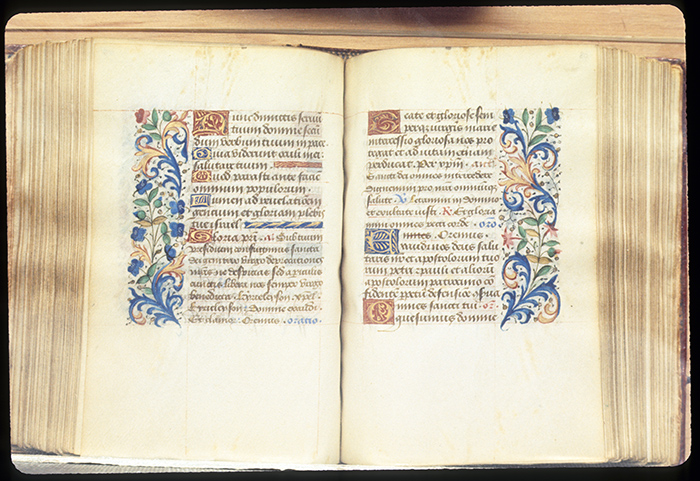 Nunc dimittis servu
tuum domine secu
dum verbum tuum in pace
Quia viderunt oculi mei
salutare tuum
Quod parasti ante faci
omnium populorum
Lumen ad revelationem
gentium et gloriam plebis
tue israel
Gloria pri. a. Sub tuum
presidium confugimus sancta
dei genitrix virgo
ne despicias sed a periculis
cunctis libera nos semper virgo
benedicta. Kyrieleyson. xpel.
Kyrieleyson. Domine exaudi.
Et clamor. Oremus. oratio.
Beate et gloriose sem
perque virginis marie
intercessio gloriosa nos pro
tegat et ad vitam eternam
perducat. Per xpm. ants
Sancti dei omnes intercedere
dignemini pro nra omniumque
salute. V. Letamini in Domino
et exultate iusti. R. Et gloria
mini omnes recti corde. oro
Oremus.
audi nos deus salu
taris nr et apostolorum tuo
rum petri et pauli et alioru
apostolorum patrocinio co
fidente
omnes sancti tui. or.
quesumus domine